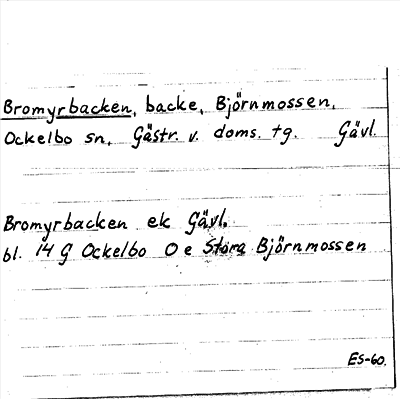 Bromyrbacken, backe, Björnmossen,
Ockelbo sn, Gästr. v. doms. tg. Gävl.
Bromyrbacken ek Gävl.
bl. 14 G Ockelbo O e Stora Björnmossen
ES-60.